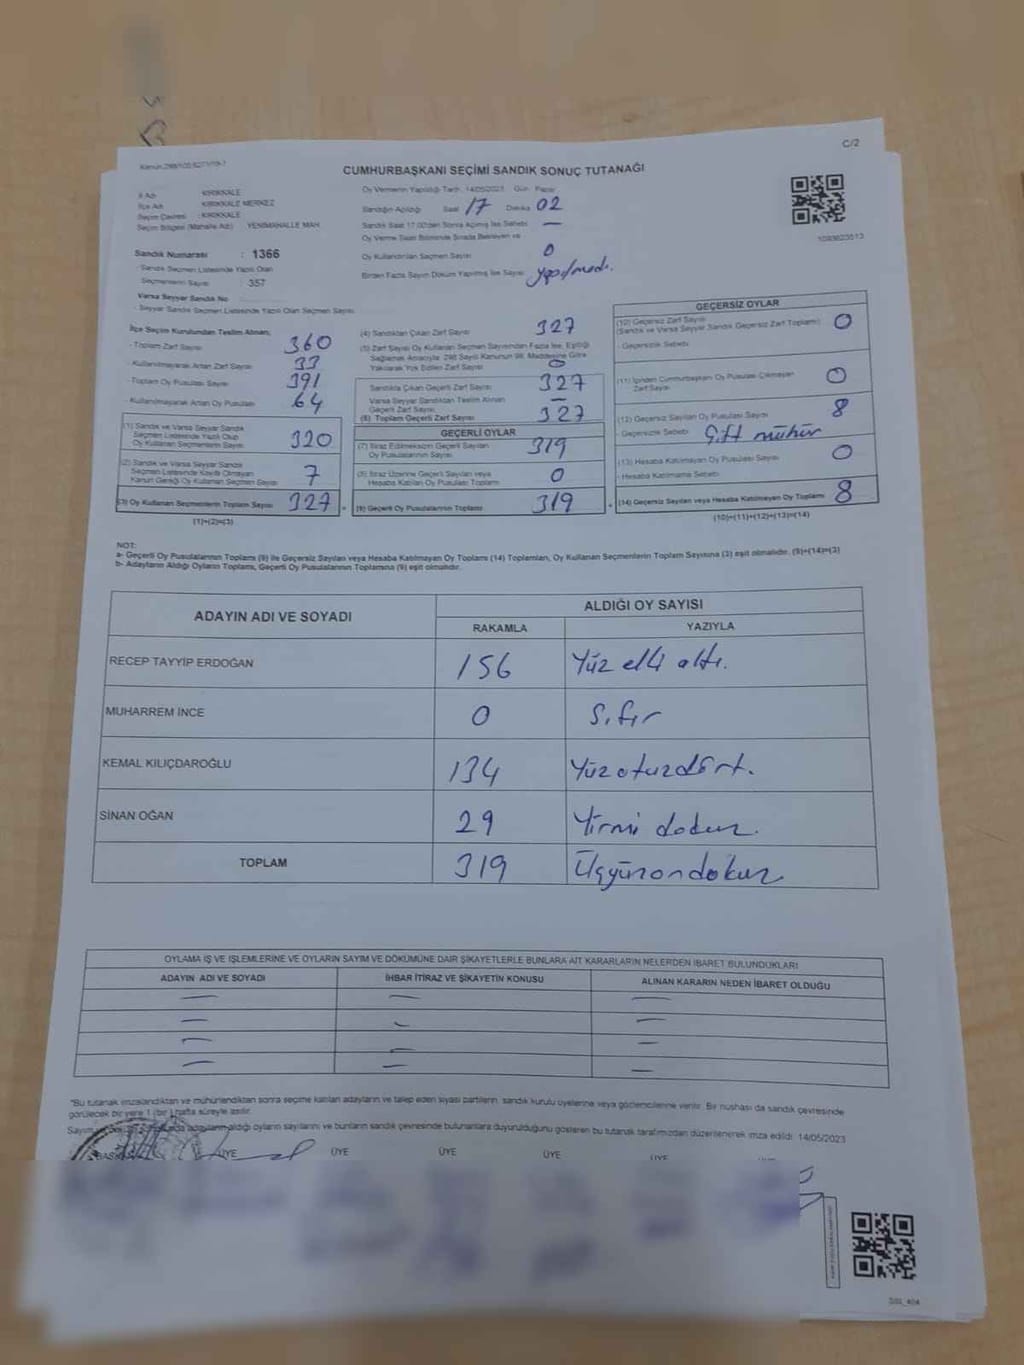 C/2
CUMHURBAŞKANI SEÇİMİ SANDIK SONUÇ TUTANAĞI
İl Adı : KIRIKKALE
İlçe Adı : KIRIKKALE MERKEZ
Seçim Çevresi : KIRIKKALE
Seçim Bölgesi (Mahalle Adı) : YENİMAHALLE MAH.
Sandık Numarası : 1366
Sandık Seçmen Listesinde Yazılı Olan
Seçmenlerin Sayısı : 357
Varsa Seyyar Sandık No
- Seyyar Sandık Seçmen Listesinde Yazılı Olan Seçmen Sayısı
Oy Vermenin Yapıldığı Tarih : 14/05/2023 Gün : Pazar
Sandığın Açıldığı Saat 17 Dakika 02
Sandık Saat 17.00'den Sonra Açılmış İse Sebebi —
Oy Verme Saati Bitiminde Sırada Bekleyen ve
Oy Kullandırılan Seçmen Sayısı 0
Birden Fazla Sayım Döküm Yapılmış İse Sayısı Yapılmadı.
1093623513
İlçe Seçim Kurulundan Teslim Alınan;
- Toplam Zarf Sayısı 360
- Kullanılmayarak Artan Zarf Sayısı 33
- Toplam Oy Pusulası Sayısı 391
- Kullanılmayarak Artan Oy Pusulası 64
(1) Sandık ve Varsa Seyyar Sandık
Seçmen Listesinde Yazılı Olup
Oy Kullanan Seçmenlerin Sayısı 320
(2) Sandık ve Varsa Seyyar Sandık
Seçmen Listesinde Kayıtlı Olmayan
Kanun Gereği Oy Kullanan Seçmen Sayısı 7
(3) Oy Kullanan Seçmenlerin Toplam Sayısı 327
(1)+(2)=(3)
(4) Sandıktan Çıkan Zarf Sayısı 327
(5) Zarf Sayısı Oy Kullanan Seçmen Sayısından Fazla İse, Eşitliği
Sağlamak Amacıyla 298 Sayılı Kanunun 98. Maddesine Göre
Yakılarak Yok Edilen Zarf Sayısı 0
Sandıkta Çıkan Geçerli Zarf Sayısı 327
Varsa Seyyar Sandıktan Teslim Alınan
Geçerli Zarf Sayısı —
(6) Toplam Geçerli Zarf Sayısı 327
GEÇERLİ OYLAR
(7) İtiraz Edilmeksizin Geçerli Sayılan
Oy Pusulasının Sayısı 319
(8) İtiraz Üzerine Geçerli Sayılan veya
Hesaba Katılan Oy Pusulası Toplamı 0
(9) Geçerli Oy Pusulalarının Toplamı 319
GEÇERSİZ OYLAR
(10) Geçersiz Zarf Sayısı 0
(Sandık ve Varsa Seyyar Sandık Geçersiz Zarf Toplamı)
- Geçersizlik Sebebi
(11) İçinden Cumhurbaşkanı Oy Pusulası Çıkmayan
Zarf Sayısı 0
(12) Geçersiz Sayılan Oy Pusulası Sayısı 8
- Geçersizlik Sebebi Çift mühür
(13) Hesaba Katılmayan Oy Pusulası Sayısı 0
- Hesaba Katılmama Sebebi
(14) Geçersiz Sayılan veya Hesaba Katılmayan Oy Toplamı 8
(10)+(11)+(12)+(13)=(14)
NOT:
a- Geçerli Oy Pusulalarının Toplamı (9) ile Geçersiz Sayılan veya Hesaba Katılmayan Oy Toplamı (14) Toplamları, Oy Kullanan Seçmenlerin Toplam Sayısına (3) eşit olmalıdır. (9)+(14)=(3)
b- Adayların Aldığı Oyların Toplamı, Geçerli Oy Pusulalarının Toplamına (9) eşit olmalıdır.
ADAYIN ADI VE SOYADI ALDIĞI OY SAYISI
RAKAMLA YAZIYLA
RECEP TAYYİP ERDOĞAN 156 Yüz elli altı.
MUHARREM İNCE 0 Sıfır
KEMAL KILIÇDAROĞLU 134 Yüzotuzdört.
SİNAN OĞAN 29 Yirmi dokuz.
TOPLAM 319 Üçyüzondokuz
OYLAMA İŞ VE İŞLEMLERİNE VE OYLARIN SAYIM VE DÖKÜMÜNE DAİR ŞİKAYETLERLE BUNLARA AİT KARARLARIN NELERDEN İBARET BULUNDUKLARI
ADAYIN ADI VE SOYADI İHBAR İTİRAZ VE ŞİKAYETİN KONUSU ALINAN KARARIN NEDEN İBARET OLDUĞU
*Bu tutanak imzalandıktan ve mühürlendikten sonra seçime katılan adayların ve talep eden siyasi partilerin, sandık kurulu üyelerine veya gözlemcilerine verilir. Bir nüshası da sandık çevresinde
görülecek bir yere 1 (bir) hafta süreyle asılır.
adayların aldığı oyların sayılarını ve bunların sandık çevresinde bulunanlara duyurulduğunu gösteren bu tutanak tarafımızdan düzenlenerek imza edildi. 14/05/2023
ÜYE ÜYE ÜYE ÜYE ÜYE